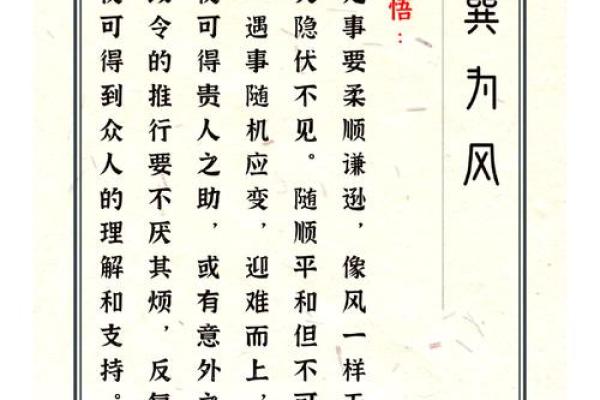 巽为风
悟：
事要柔顺谦逊，像风一样无
隐伏不见。随顺平和但不可
遇事随机应变，迎难而上，
可得贵人之助，或有意外之
令的推行要不厌其烦，反复
可得到众人的理解和支持。